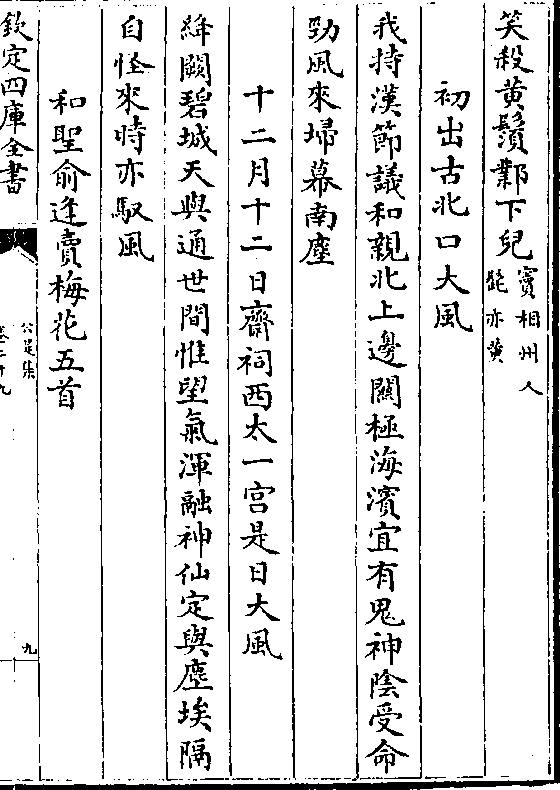 笑殺黄鬚鄴下兒竇相州人髭亦黄
初出古北口大風
我持漢節議和親北上邊關極海濱宜有鬼神陰受命
勁風來埽幕南塵
十二月十二日齋祠西太一宫是日大風
絳闕碧城天與通世間惟望氣渾融神仙定與塵埃隔
自怪來時亦馭風
和聖俞逢賣梅花五首
欽定四庫全書
公是集
卷二十九
九